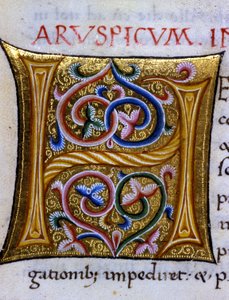 ARUSPICUM IN
H
gationibꝫ impediret: & p